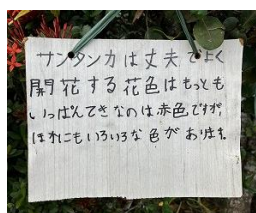 サンタンカは丈夫でよく
開花する花色はもっとも
いっぱんてきなのは赤色ですが,
ほれにもいろいろな色があります。